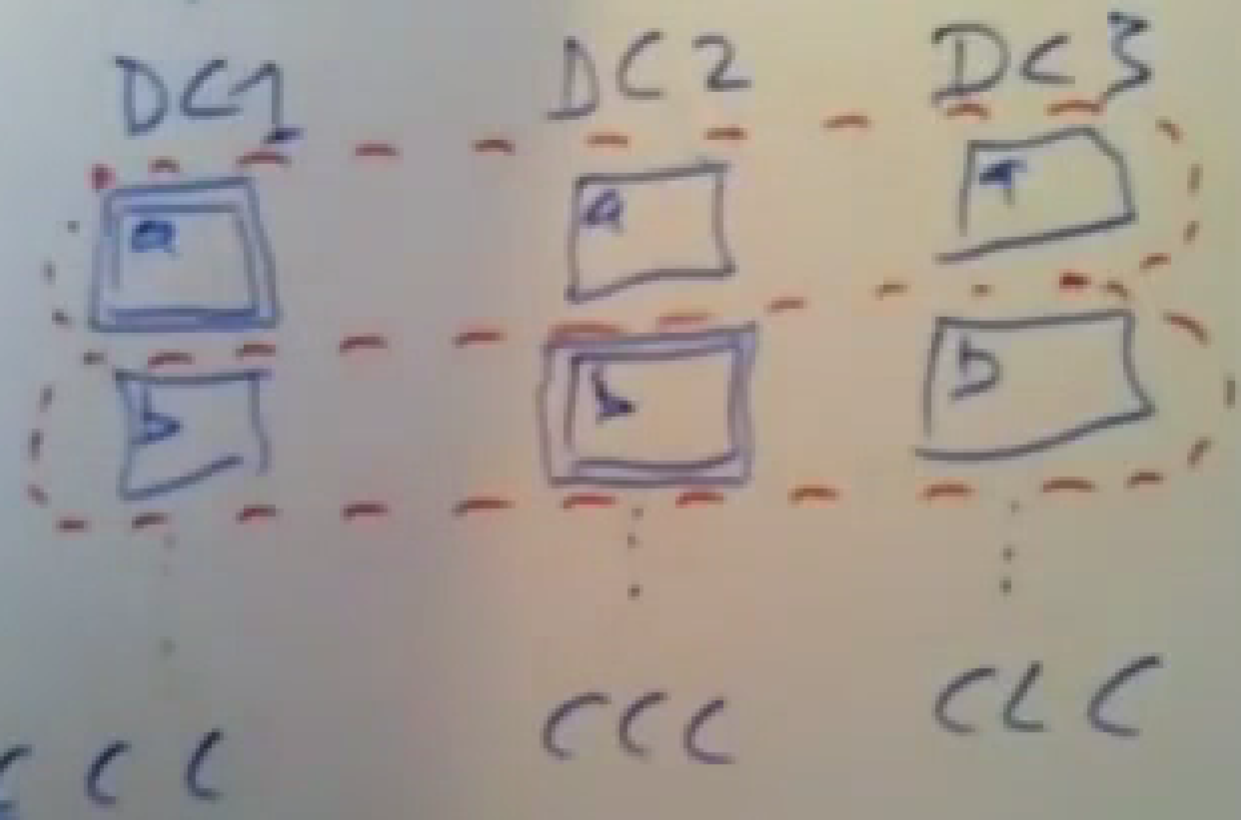 DC1 DC2 DC3
a a a
b b b
C C C C C C C C C